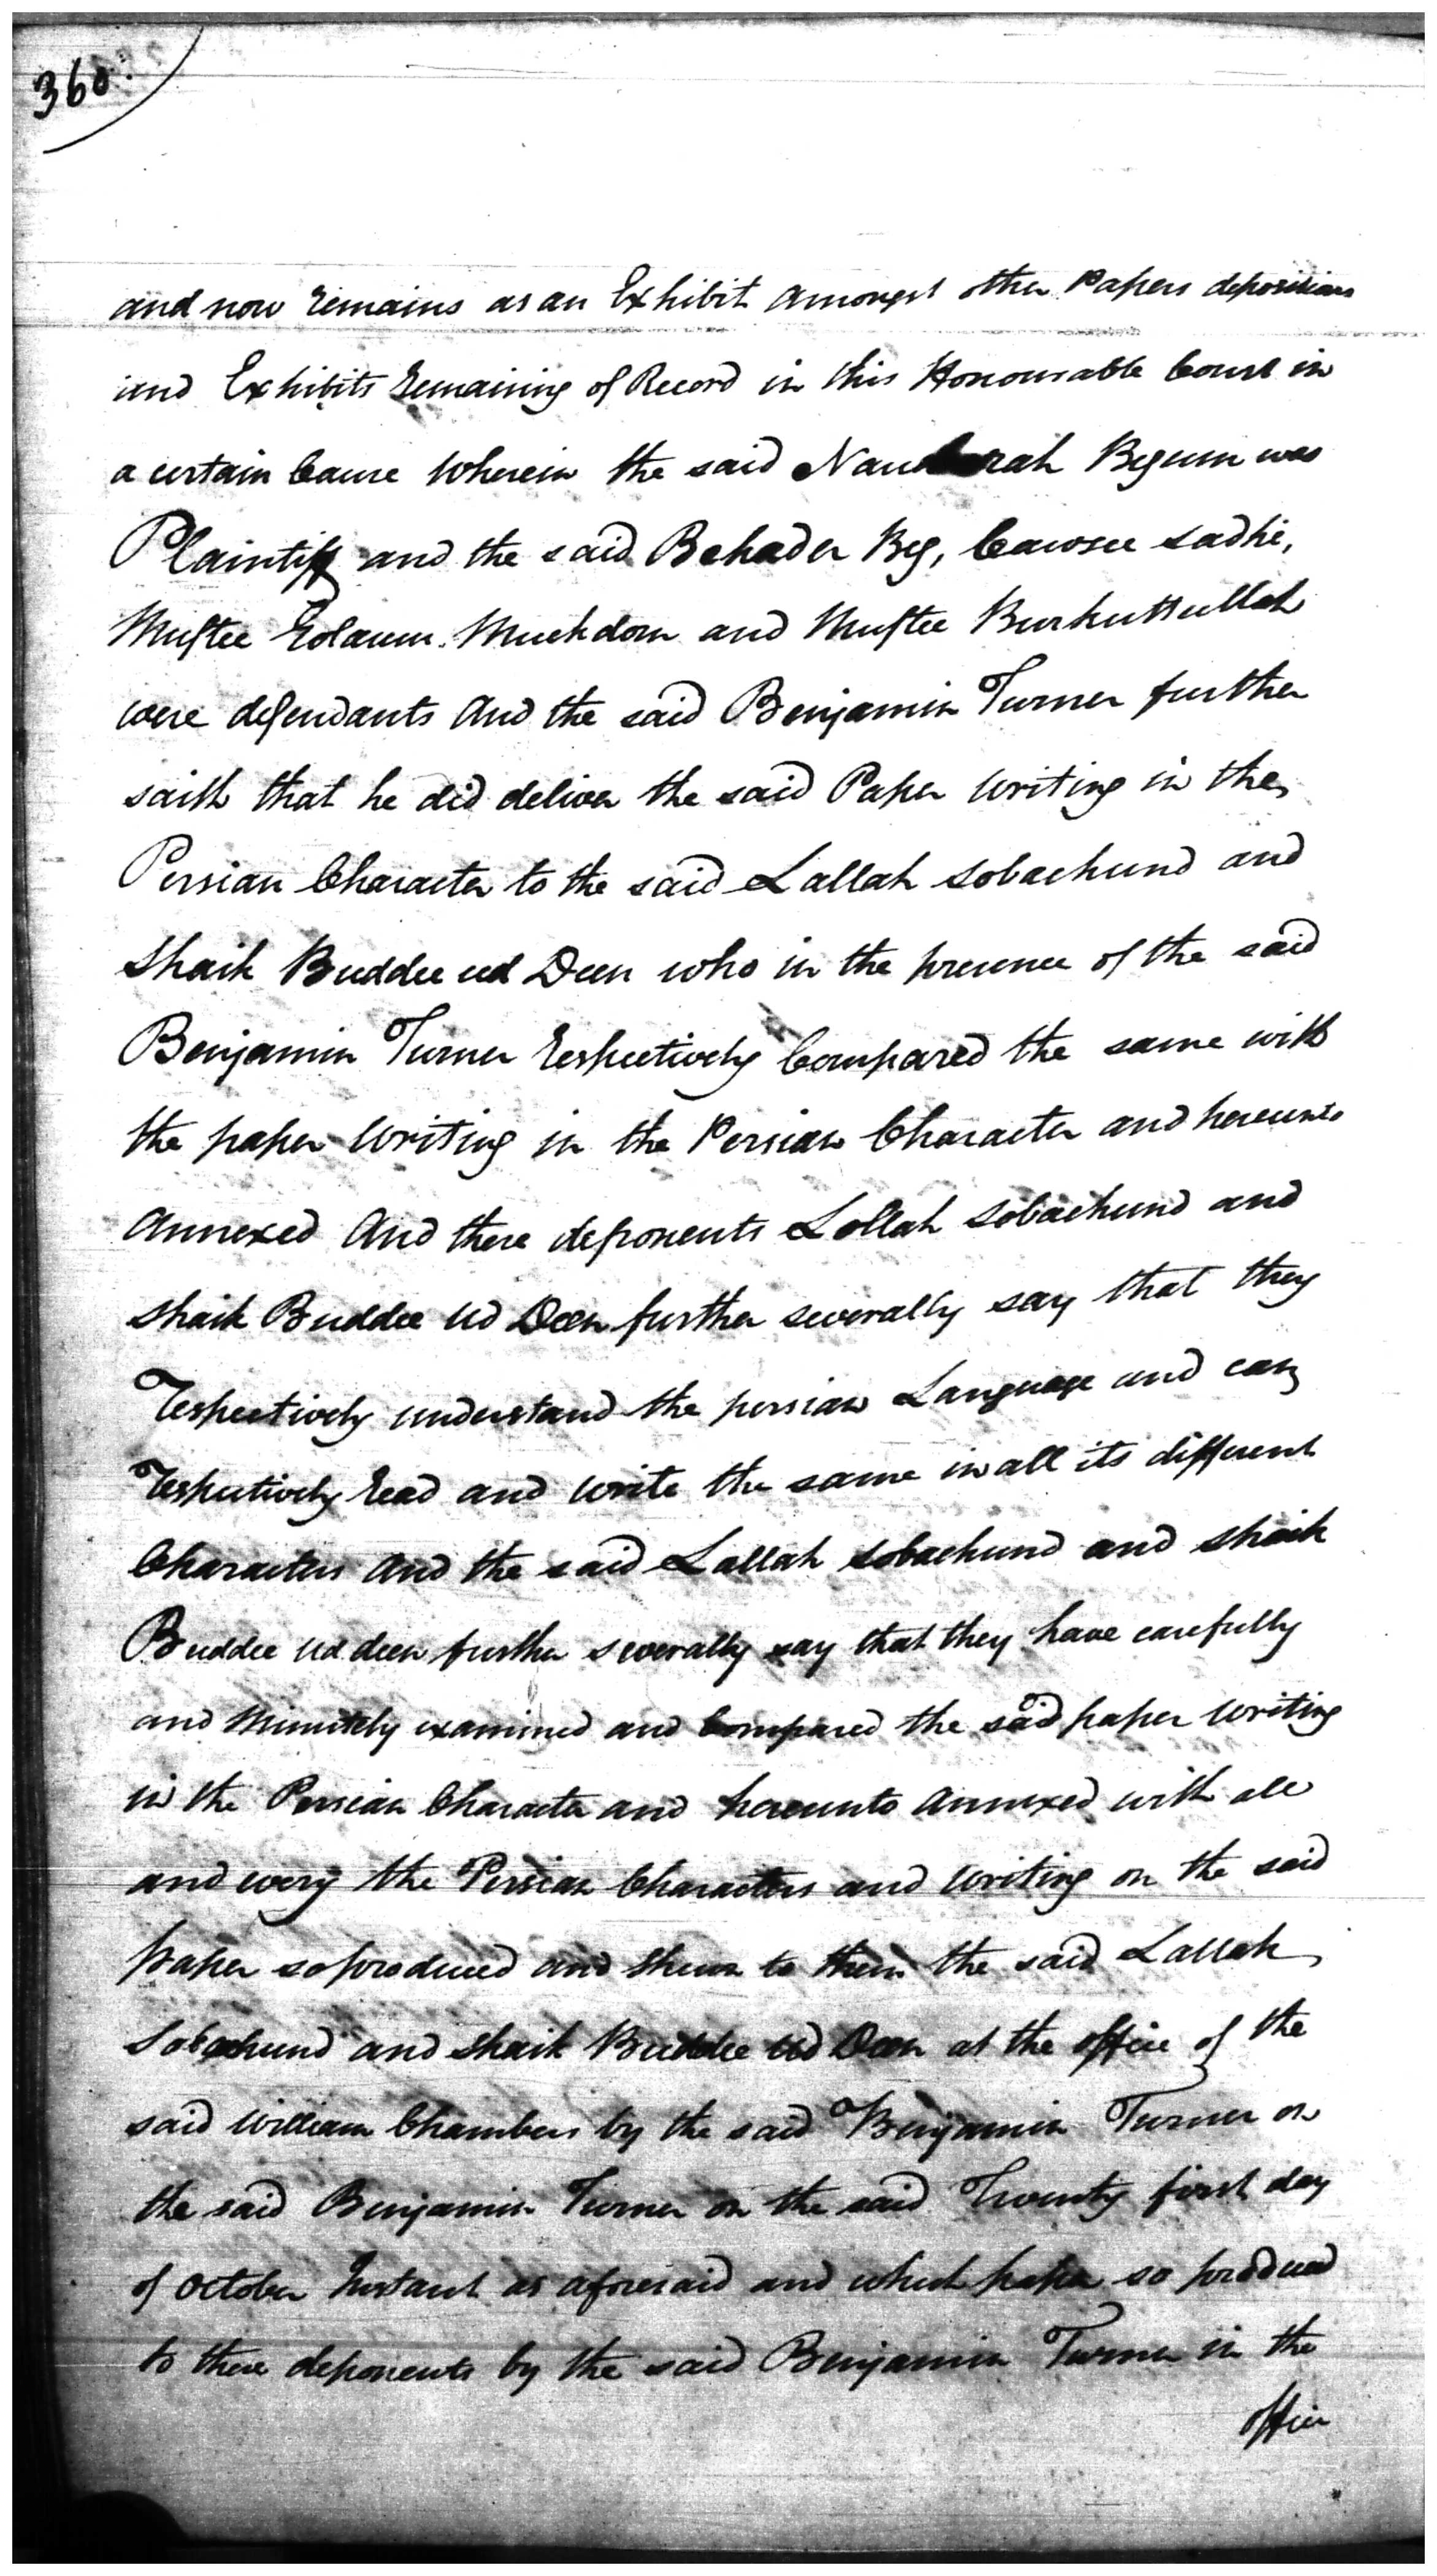 360
and now remains as an Exhibit amongst other Papers depositions
and Exhibits remaining of Record in this Honourable Court in
a certain Cause wherein the said Begum was
Plaintiff and the said Behader Beg, Cawsee Sadhi,
Muftee Golaum Muckdom and Muftee Burkuttullah
were defendants And the said Benjamin Turner further
saith that he did deliver the said Paper writing in the
Persian Character to the said Lallah Sobachund and
Shaik Buddee ud Deen who in the presence of the said
Benjamin Turner respectively Compared the same with
the paper writing in the Persian Character and hereunto
annexed And these deponents Lollah Sobachund and
Shaik Buddee Ud Deen further severally say that they
respectively understand the persian Language and can
respectively read and write the same in all its different
Characters And the said Lallah Sobachund and Shaik
Buddee Ud deen further severally say that they have carefully
and Minutely examined and Compared the said paper writing
in the Persian Character and hereunto annexed with all
and every the Persian Characters and writing on the said
paper so produced and shewn to them the said Lallah
Sobachund and Shaik Buddee Ud Deen at the office of the
said William Chambers by the said Benjamin Turner on
the said Benjamin Turner on the said Twenty first day
of October Instant as aforesaid and which paper so produced
to these deponents by the said Benjamin Turner in the
office